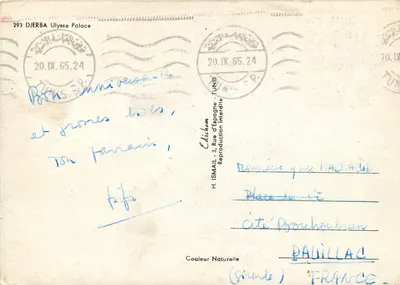 293 DJERBA Ulysse Palace
20.IX.65.24
TUNIS R.P.
20.IX.65.24
TUNIS R.P.
20.IX
TUNIS
Bon anniversaire
et grosses bises,
Ton parrain,
H. ISMAIL - 3, Rue d'Espagne - TUNIS
Reproduction Interdite
Monsieur
Place de
cité
PAUILLAC
(Gironde) FRANCE
Couleur Naturelle